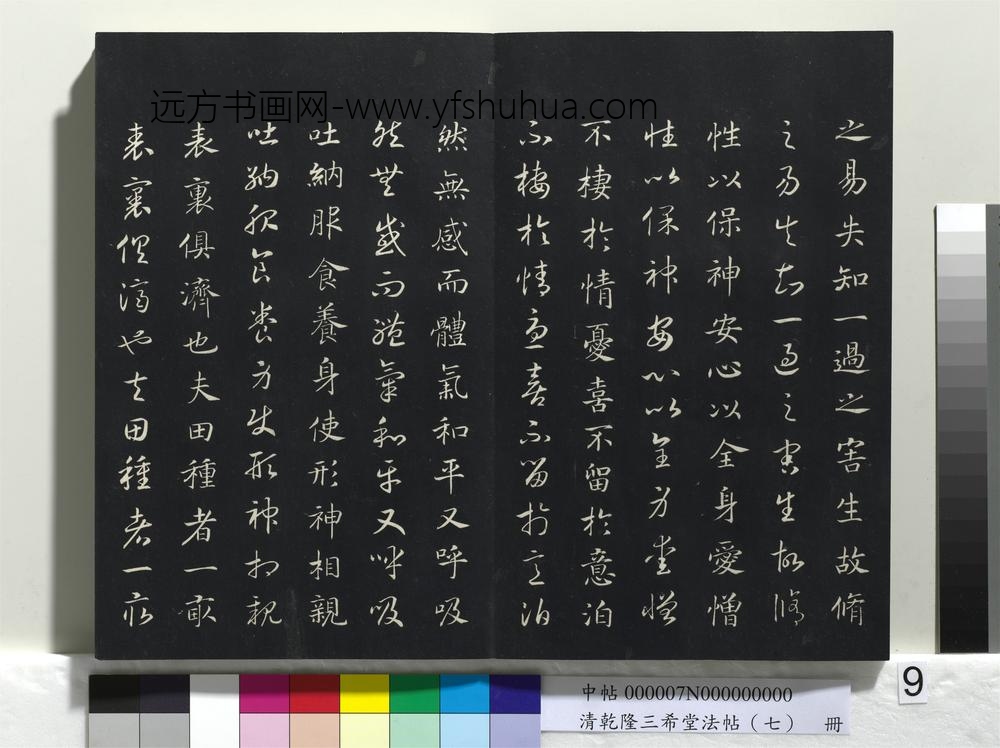 远方书画网-www.yfshuhua.com
之易失知一過之害生故脩
之易失知一過之害生故脩
性以保神安心以全身愛憎
性以保神安心以全身愛憎
不棲於情憂喜不留於意泊
不棲於情憂喜不留於意泊
然無感而體氣和平又呼吸
然無感而體氣和平又呼吸
吐納服食養身使形神相親
吐納服食養身使形神相親
表裏俱濟也夫田種者一畝
表裏俱濟也夫田種者一畝
中帖 000007N000000000
清乾隆三希堂法帖（七） 冊
9